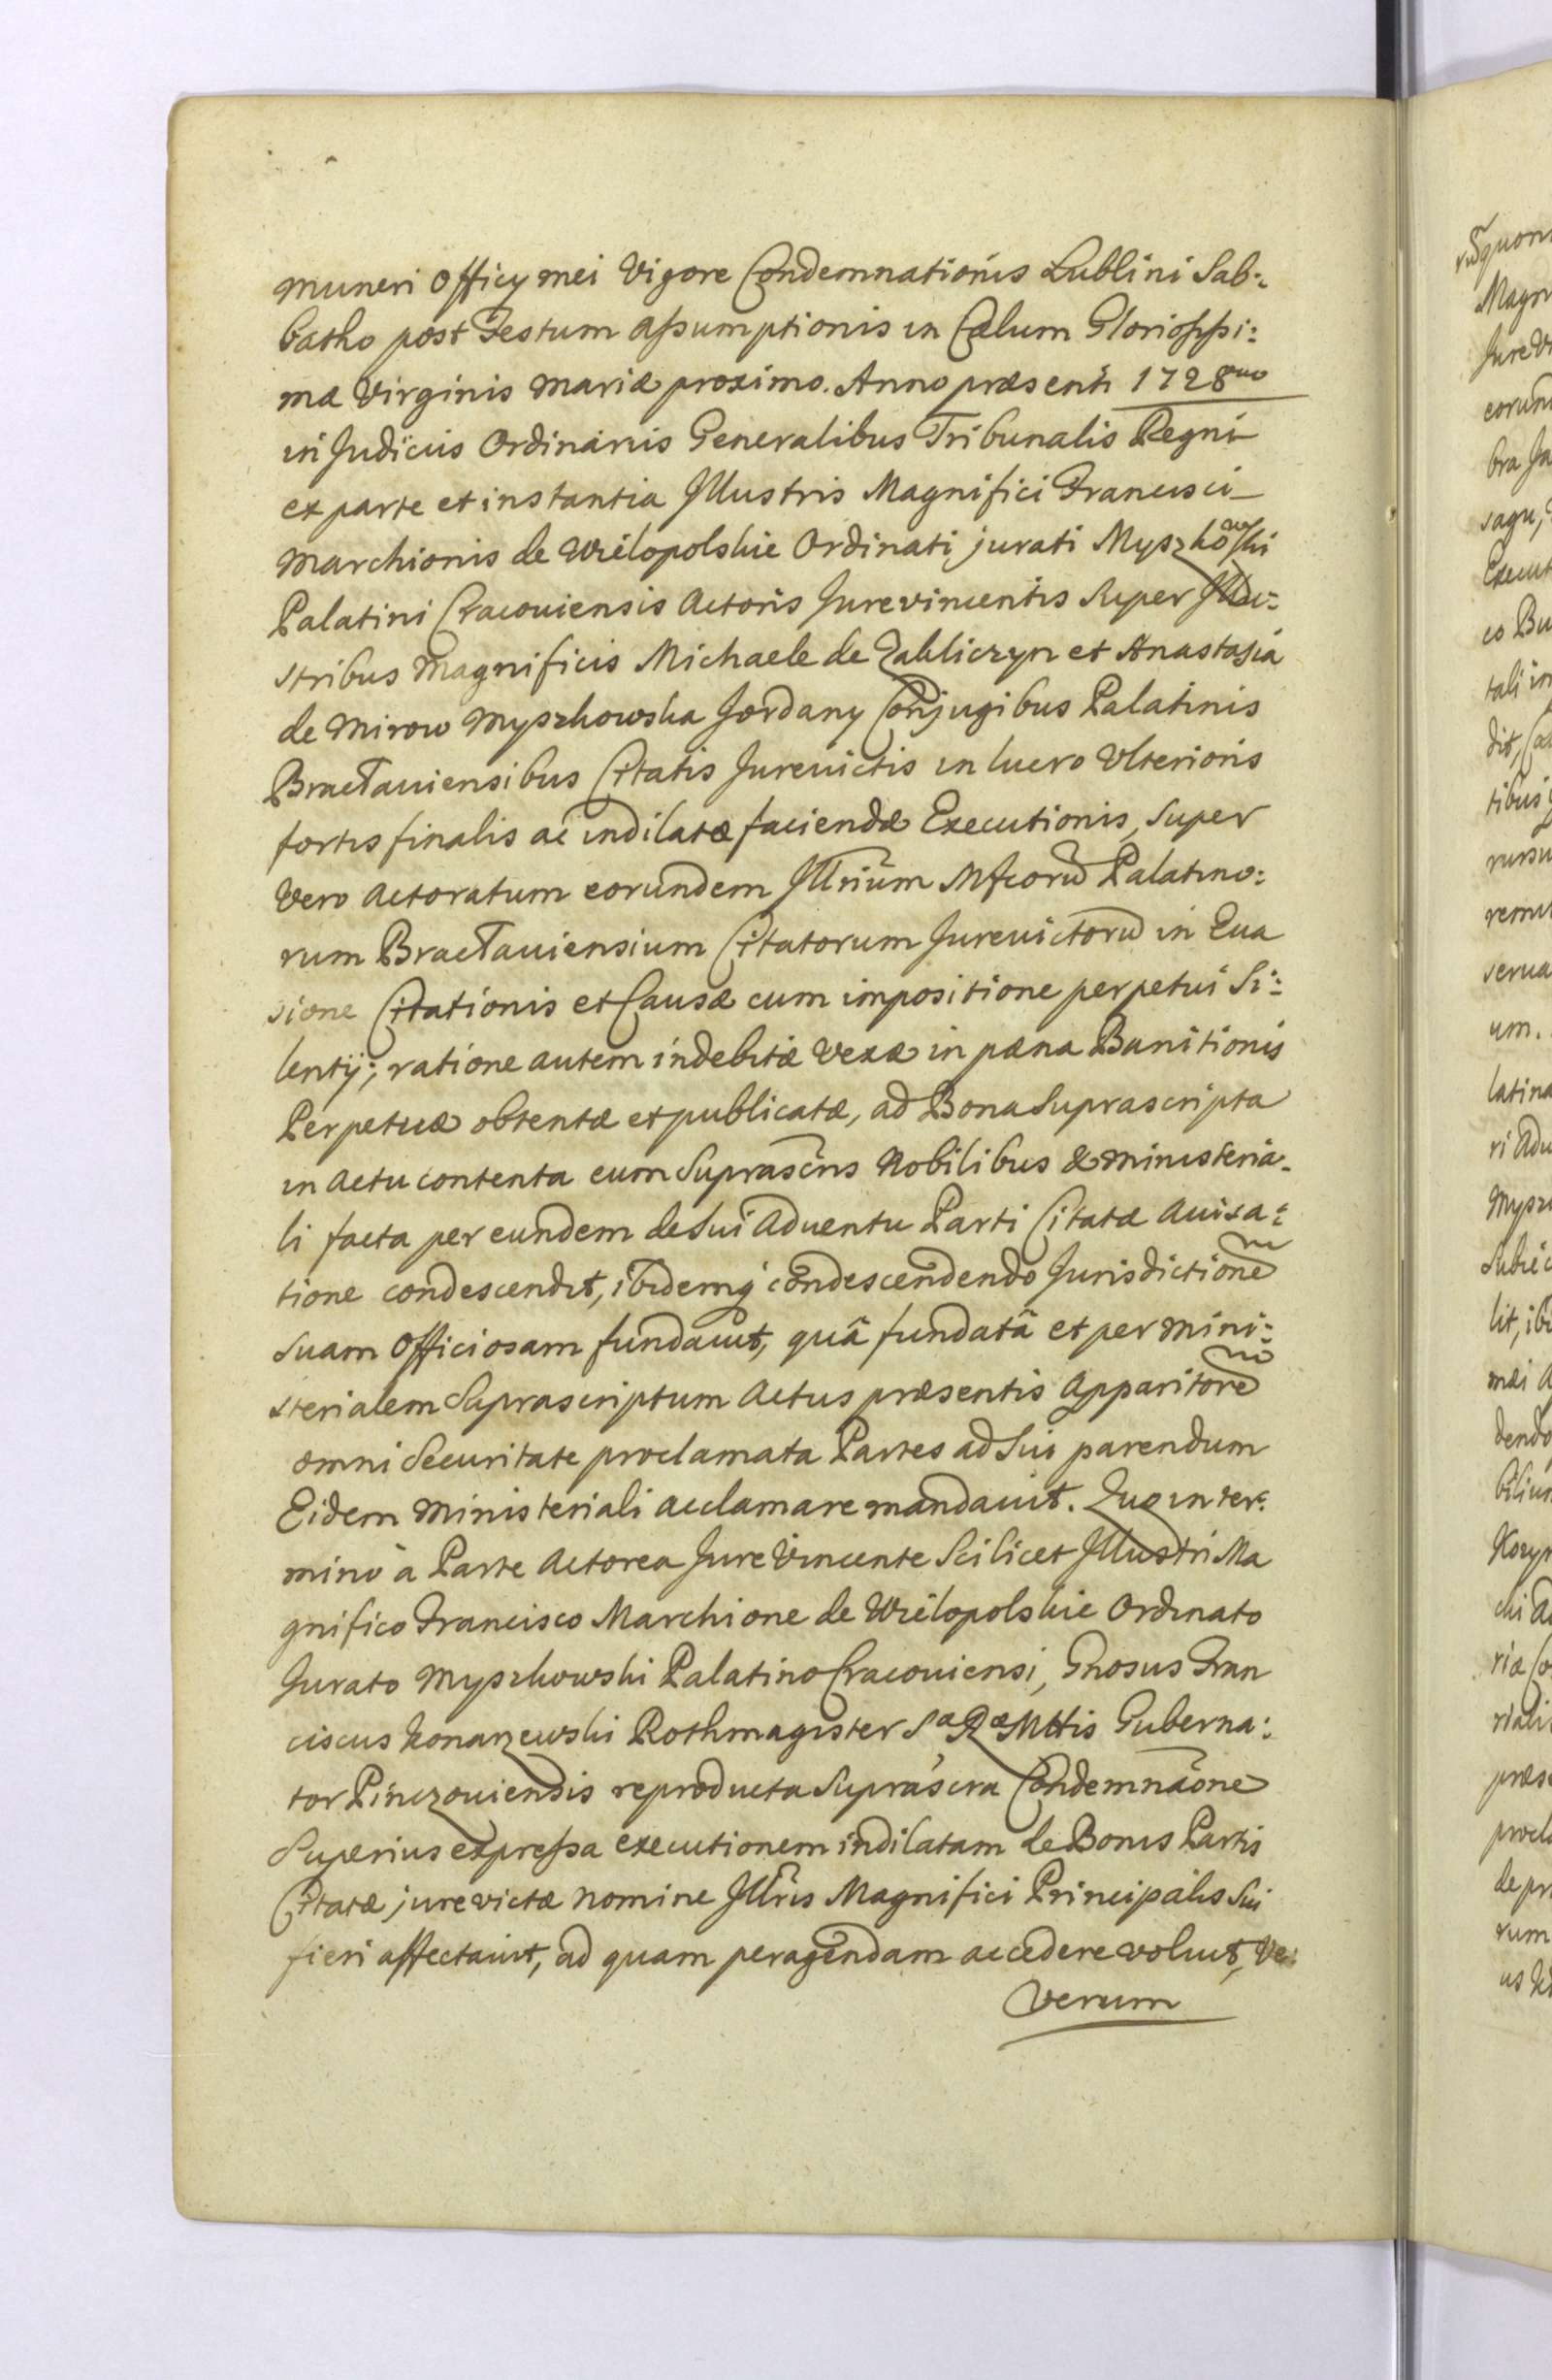 muneri Officij mei Vigore Condemnationis Lublini Sab:
batho post Festum Assumptionis in Cælum Gloriosissi:
mæ Virginis Mariæ proximo. Anno præsenti 1728uo
in Judiciis Ordinariis Generalibus Tribunalis Regni
ex parte et instantia Illustris Magnifici Francisci
Marchionis de Wielopolskie Ordinati jurati Myszkowski
Palatini Cracoviensis Actoris Jurevincentis Super Illu:
stribus Magnificis Michaele de Zakliczyn et Anastasia
de Mirow Myszkowska Jordany Conjugibus Palatinis
Braclaviensibus Citatis Jurevictis in lucro Ulterioris
fortis finalis ac indilatæ faciendæ Executionis, Super
Vero Actoratum eorundem Illrium Mfcorũ Palatino:
rum Braclaviensium Citatorum Jurevictorũ in Eva
sione Citationis et Causæ cum impositione perpetui Si:
lentij; ratione autem indebitæ Vexæ in pæna Banitionis
Perpetuæ obtentæ et publicatæ, ad Bona Suprascripta
in Actu contenta cum Suprascris Nobilibus & Ministeria:
li facta per eundem de Sui Adventu Parti Citatæ Avisa:
tione condescendit, ibidemq condescendendo Jurisdictionem
Suam Officiosam fundavit, quâ fundatâ et per Mini:
sterialem Suprascriptum Actus præsentis Apparitorem
omni Securitate proclamata Partes ad Sui parendum
Eidem Ministeriali acclamare mandavit. Quo in ter:
mino à Parte Actorea Jure Vincente Scilicet Illustri Ma
gnifico Francisco Marchione de Wielopolskie Ordinato
Jurato Myszkowski Palatino Cracoviensi, Gnosus Fran
ciscus Konarzewski Rothmagister Sæ Ræ Mttis Guberna:
tor Pinczoviensis reproducta Suprascra Condemnãone
Superius expressa executionem indilatam de Bonis Partis
Citatæ jurevictæ nomine Illris Magnifici Principalis Sui
fieri affectavit, ad quam peragendam accedere voluit, Ve:
Verum